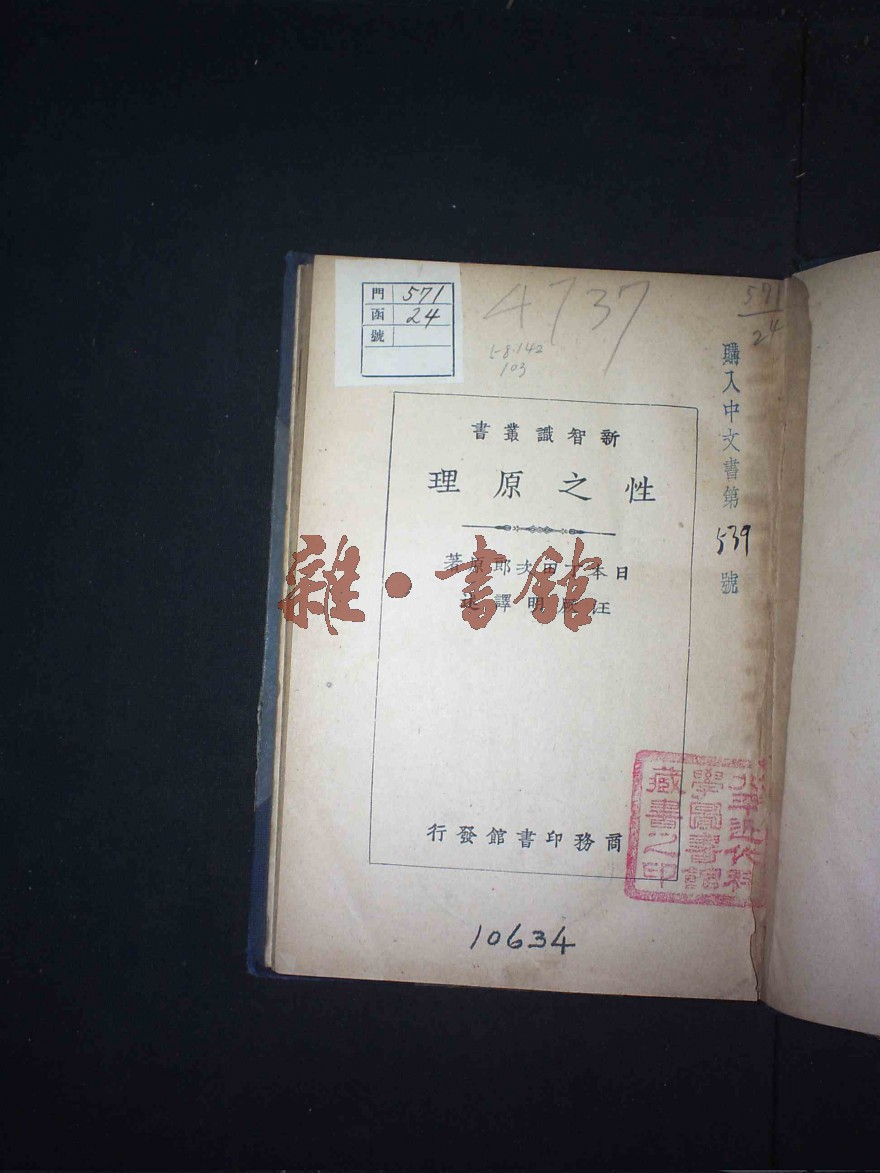 門 571
函 24
號
4737
571
24
103
購入中文書第539號
新智識叢書
性之原理
日本 次郎原著
汪 明譯
雜·書館
商務印書館發行
北平近代科
學圖書館
藏書之印
10634